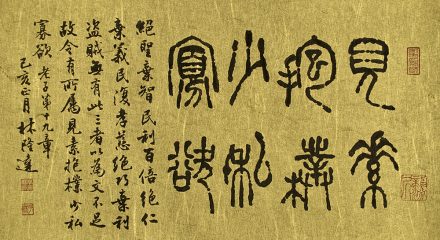 見素
抱樸
少私
寡欲
絕聖棄智民利百倍絕仁
棄義民復孝慈絕巧棄利
盜賊無有此三者以為文不足
故令有所屬見素抱樸少私
寡欲 老子第十九章
己亥正月 林隆達